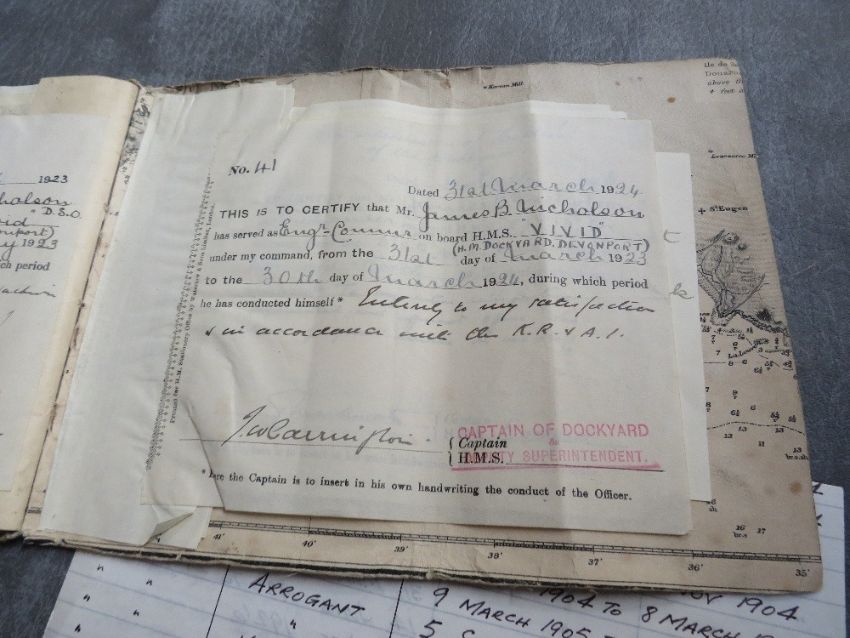 1923
cholson
" D.S.O.
1923
ch period
No. 41
Dated 31st March 1924
THIS IS TO CERTIFY that Mr. James B. Nicholson
has served as Engr. Commr on board H.M.S. "VIVID"
(H.M. DOCKYARD. DEVONPORT)
under my command, from the 31st day of March 1923
to the 30th day of March 1924, during which period
he has conducted himself* Entirely to my satisfaction
& in accordance with the K.R. & A.I.
J W Carrington
Captain
H.M.S.
CAPTAIN OF DOCKYARD
&
DEPUTY SUPERINTENDENT.
* Here the Captain is to insert in his own handwriting the conduct of the Officer.
Kerean Mill
above
St Eugen
41'
40'
39'
38'
37'
36'
35'
16
17
1904
ARROGANT
9 MARCH 1905
1904 TO 8 MARCH
5